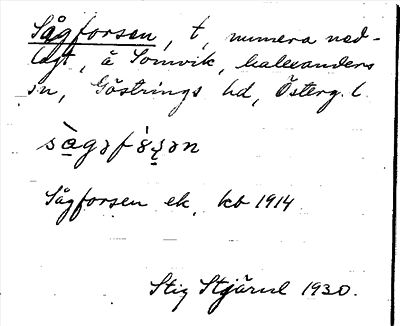 Sågforsen, t, numera ned-
lagt, å Tomvik, Kalexanders
sn, Göstrings hd, Österg. l.
Sågforsen ek. kb 1914
Stig Stjärul 1930.